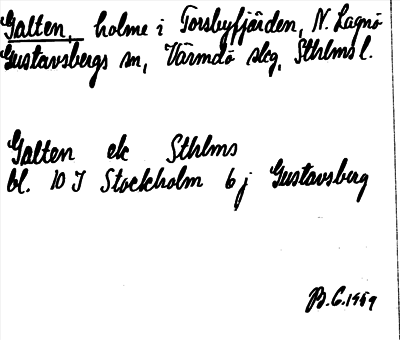 Galten, holme i Torsbyfjärden, N. Lagnö
Gustavsbergs sn, Värmdö skg, Sthlms l.
Galten ek Sthlms
bl. 10 I Stockholm 6 j Gustavsberg
B.C. 1969